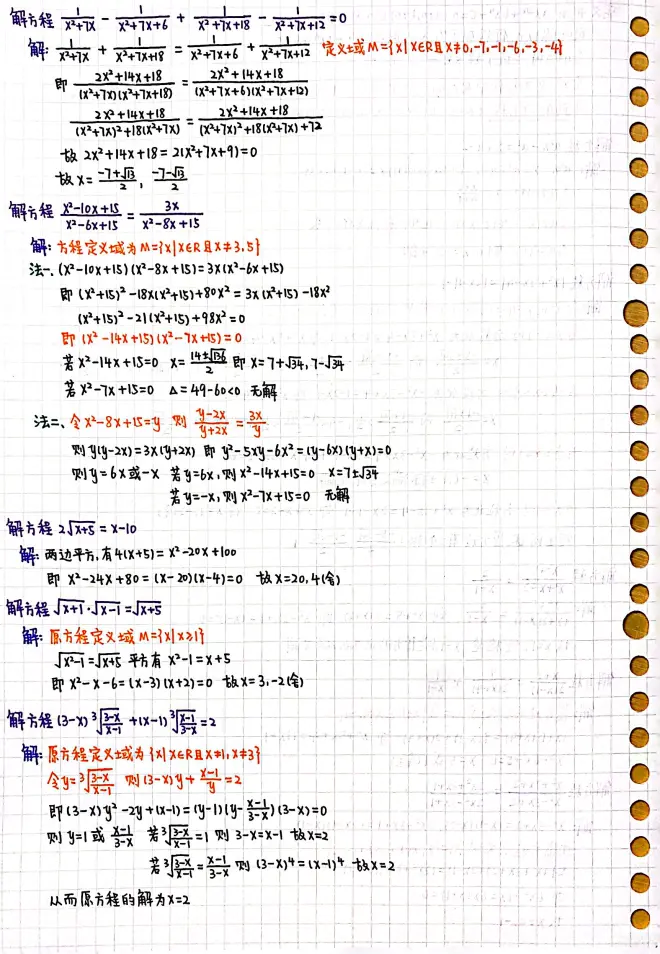 解方程 1/(x²+7x) - 1/(x²+7x+6) + 1/(x²+7x+18) - 1/(x²+7x+12) = 0
解: 1/(x²+7x) + 1/(x²+7x+18) = 1/(x²+7x+6) + 1/(x²+7x+12) 定义域M={x|x∈R且x≠0,-7,-1,-6,-3,-4}
即 (2x²+14x+18)/((x²+7x)(x²+7x+18)) = (2x²+14x+18)/((x²+7x+6)(x²+7x+12))
(2x²+14x+18)/((x²+7x)²+18(x²+7x)) = (2x²+14x+18)/((x²+7x)²+18(x²+7x)+72)
故 2x²+14x+18=2(x²+7x+9)=0
故 x=(-7+√13)/2, (-7-√13)/2
解方程 (x²-10x+15)/(x²-6x+15) = 3x/(x²-8x+15)
解: 方程定义域为M={x|x∈R且x≠3,5}
法一、(x²-10x+15)(x²-8x+15)=3x(x²-6x+15)
即 (x²+15)²-18x(x²+15)+80x²=3x(x²+15)-18x²
(x²+15)²-21(x²+15)+98x²=0
即 (x²-14x+15)(x²-7x+15)=0
若 x²-14x+15=0 x=(14±√136)/2 即 x=7+√34, 7-√34
若 x²-7x+15=0 Δ=49-60<0 无解
法二、令x²-8x+15=y 则 (y-2x)/(y+2x) = 3x/y
则 y(y-2x)=3x(y+2x) 即 y²-5xy-6x²=(y-6x)(y+x)=0
则 y=6x或-x 若y=6x, 则 x²-14x+15=0 x=7±√34
若 y=-x, 则 x²-7x+15=0 无解
解方程 2√(x+5) = x-10
解: 两边平方, 有 4(x+5)=x²-20x+100
即 x²-24x+80=(x-20)(x-4)=0 故 x=20, 4(舍)
解方程 √(x+1)·√(x-1)=√(x+5)
解: 原方程定义域M={x|x≥1}
√(x²-1)=√(x+5) 平方有 x²-1=x+5
即 x²-x-6=(x-3)(x+2)=0 故 x=3, -2(舍)
解方程 (3-x)∛((3-x)/(x-1)) +(x-1)∛((x-1)/(3-x))=2
解: 原方程定义域为 {x|x∈R且x≠1, x≠3}
令y=∛((3-x)/(x-1)) 则 (3-x)y+(x-1)/y=2
即 (3-x)y²-2y+(x-1)=(y-1)(y-(x-1)/(3-x))(3-x)=0
则 y=1或 (x-1)/(3-x) 若∛((3-x)/(x-1))=1 则 3-x=x-1 故x=2
若∛((3-x)/(x-1))=(x-1)/(3-x) 则 (3-x)⁴=(x-1)⁴ 故x=2
从而原方程的解为x=2